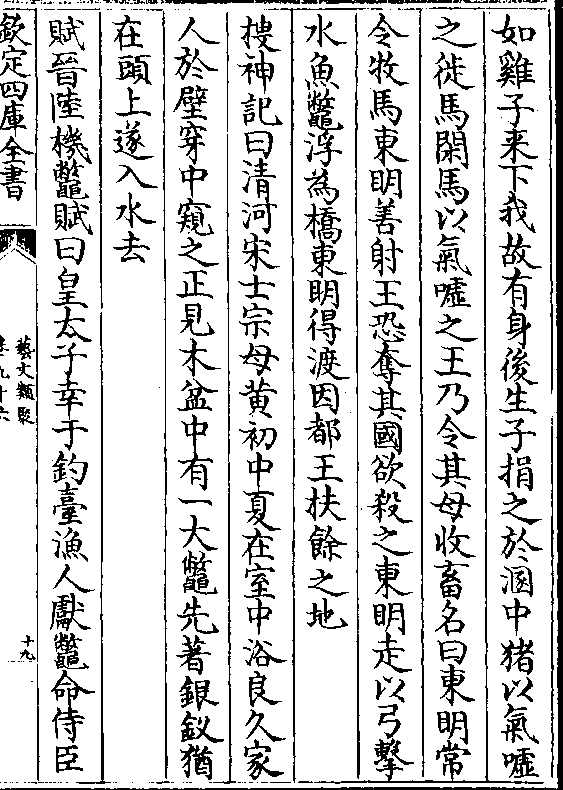 如雞子来下我故有身後生子捐之於溷中猪以氣噓
之徙馬閑馬以氣噓之王乃令其母收畜名曰東明常
令牧馬東明善射王恐奪其國欲殺之東明走以弓擊
水魚鼈浮為橋東明得渡因都王扶餘之地
搜神記曰清河宋士宗母黄初中夏在室中浴良久家
人於壁穿中窺之正見木盆中有一大鼈先著銀釵猶
在頭上遂入水去
賦晉陸機鼈賦曰皇太子幸于釣臺漁人獻鼈命侍臣
欽定四庫全書
藝文類聚
卷九十六
十九